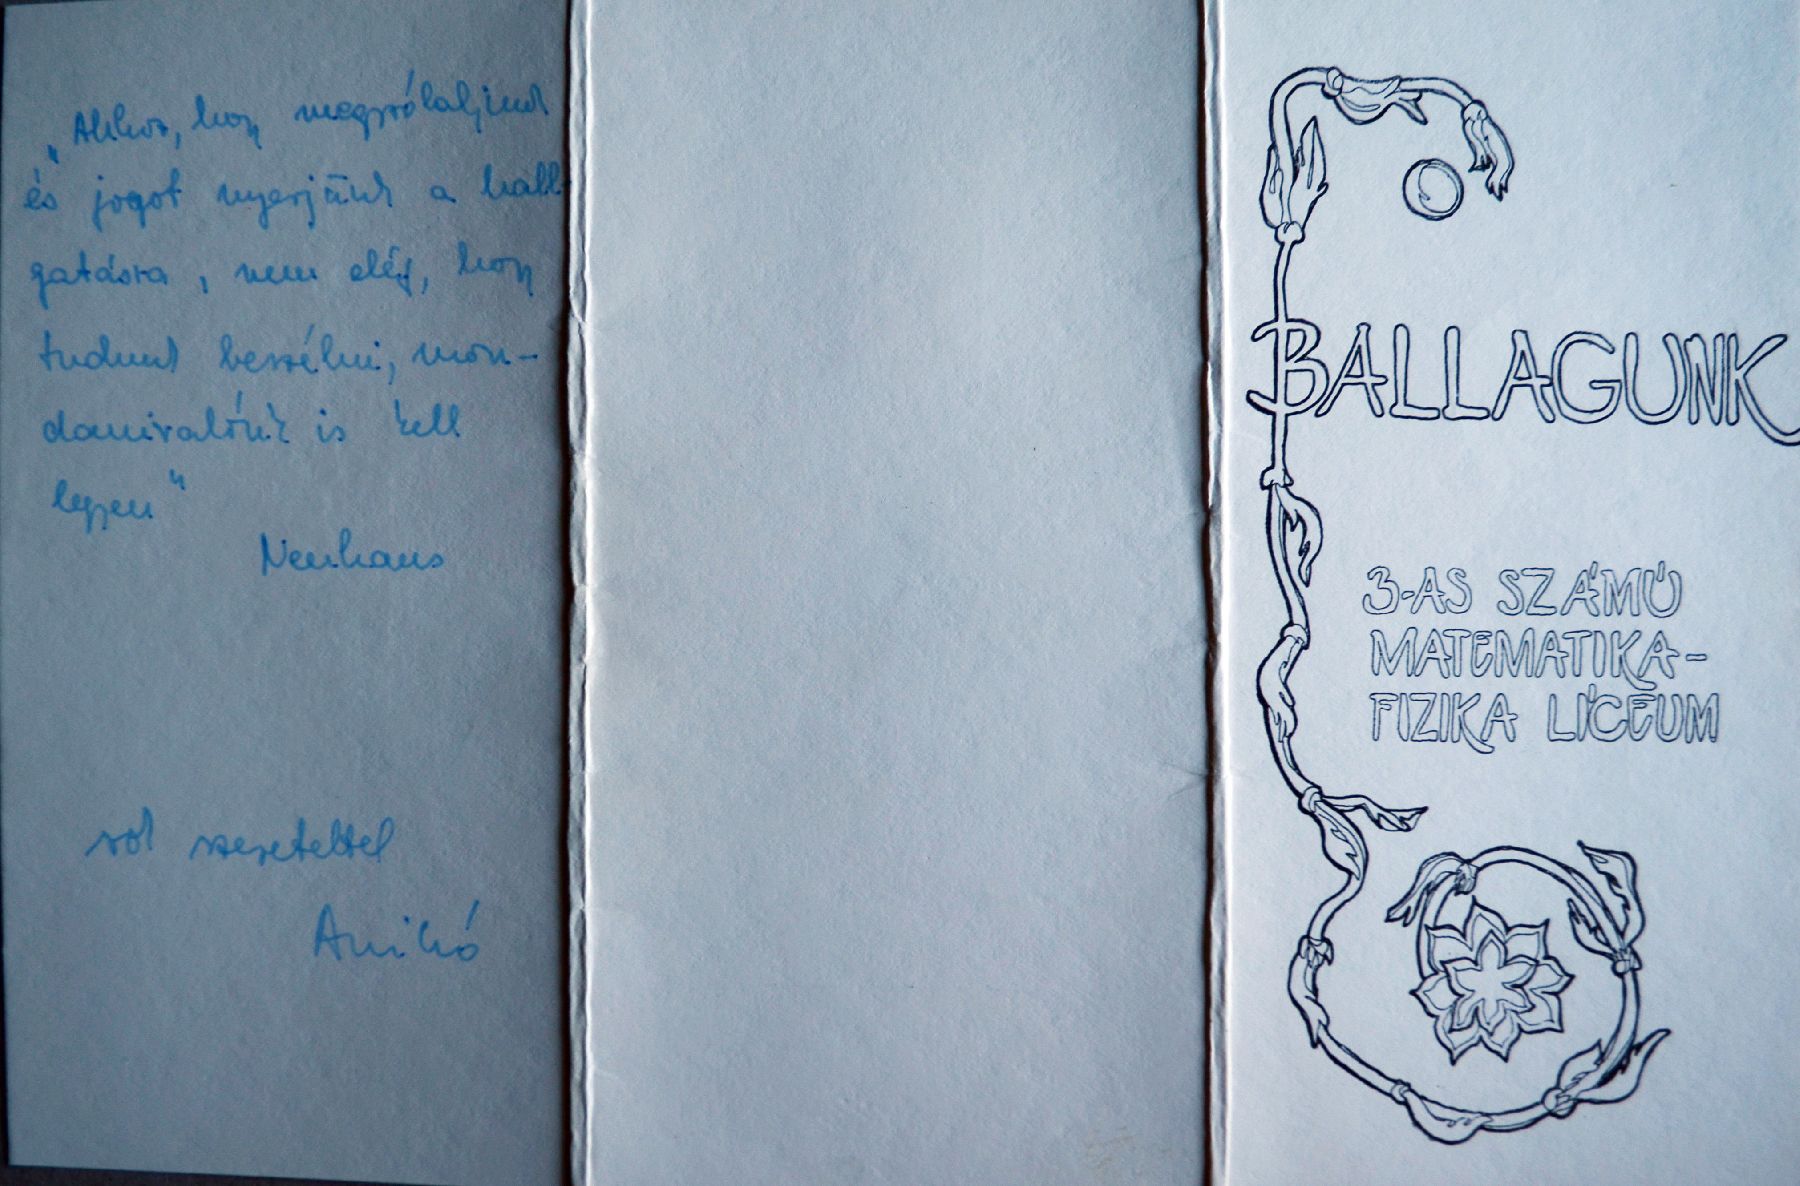 „Ahhoz, hogy megszólaljunk
és jogot nyerjünk a hall-
gatásra, nem elég, hogy
tudunk beszélni, mon-
danivalónk is kell
legyen"
Neuhaus
sok szeretettel
Anikó
BALLAGUNK
3-AS SZÁMÚ
MATEMATIKA-
FIZIKA LÍCEUM